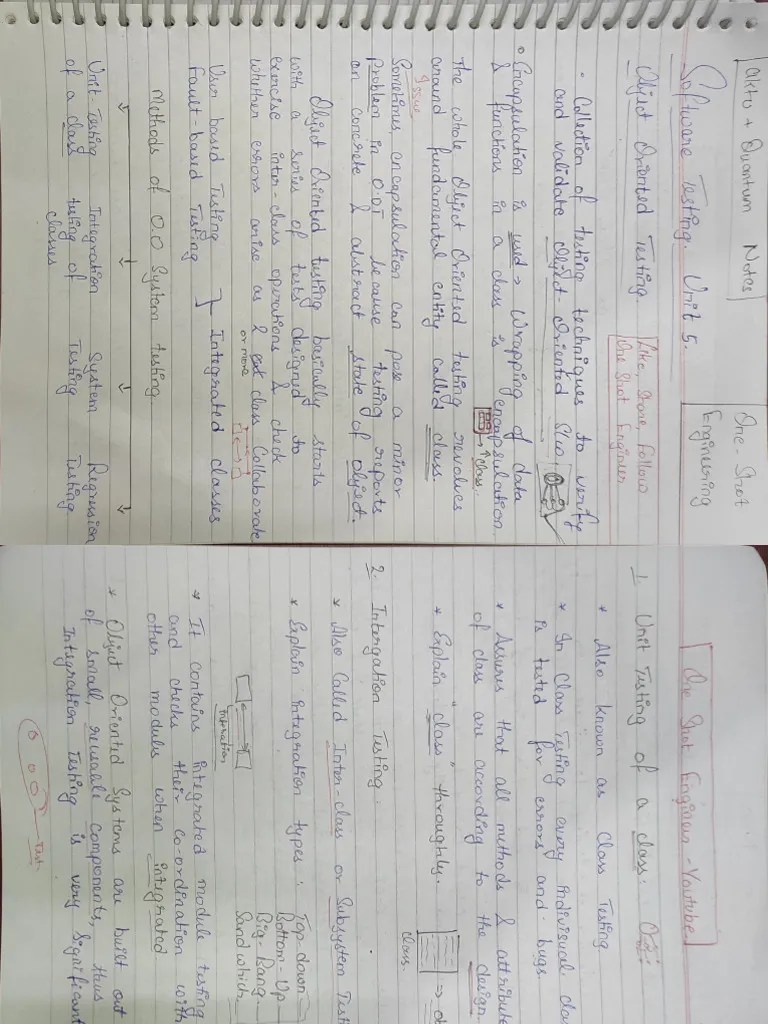 Aktu + Quantum Notes
One-Shot
Engineering
Software Testing. Unit 5.
Object Oriented Testing.
Like, Share, Follow
One Shot Engineer
• Collection of testing techniques to verify
and validate Object-Oriented S/w
• Encapsulation is used → Wrapping of data
& functions in a class is encapsulation.
→ class.
The whole Object Oriented testing revolves
around fundamental entity called class.
Issue
Sometimes, encapsulation can pose a minor
problem in O.OT because testing reports
on concrete & abstract state of object.
Object Oriented testing basically starts
with a series of tests designed to
exercise inter-class operations & check
whether errors arise as 2 class Collaborate
or more
User based Testing
Fault-based Testing } Integrated classes
Methods of O.O System testing
Unit-Testing Integration System Regression
of a class testing of Testing Testing
classes
One Shot Engineer - Youtube
1. Unit Testing of a class:
* Also known as Class Testing
* In Class Testing every indivisual clas
is tested for errors and bugs.
* Assures that all methods & attribute
of class are according to the design.
* Explain "class" throughly.
class.
2. Intergation Testing
* Also Called Inter-class or Subsystem Test
* Explain integration types: Top-down
Bottom-Up
Big-Bang
Sandwhich
Interaction
* It contains integrated module testing
and checks their co-ordination with
other modules when integrated
* Object Oriented Systems are built out
of small, reusable components, thus
Integration testing is very significant
Test